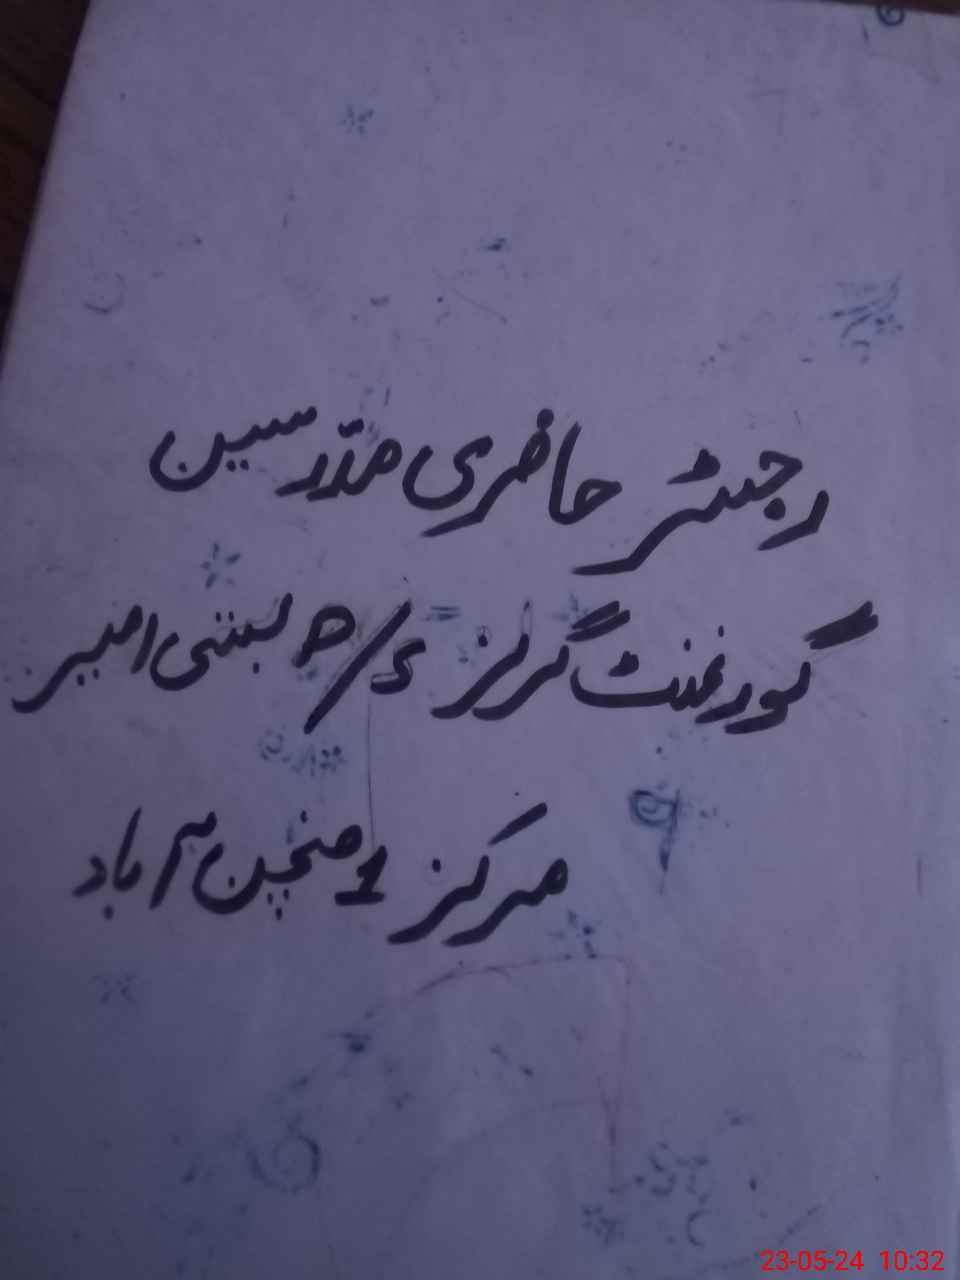 رجسٹر حاضری مدرسین
گورنمنٹ گرلز P/S بستی امیر
مرکز 1 منچن آباد
23-05-24 10:32